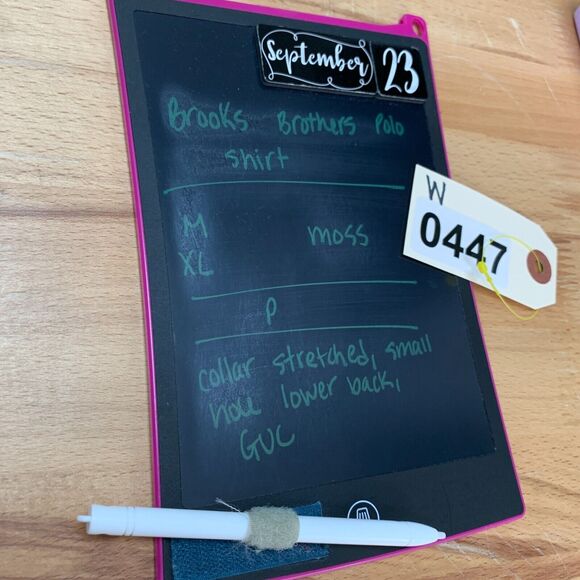 September 23
Brooks Brothers Polo
shirt
W
0447
M moss
XL
P
collar stretched, small
hole lower back,
GUC